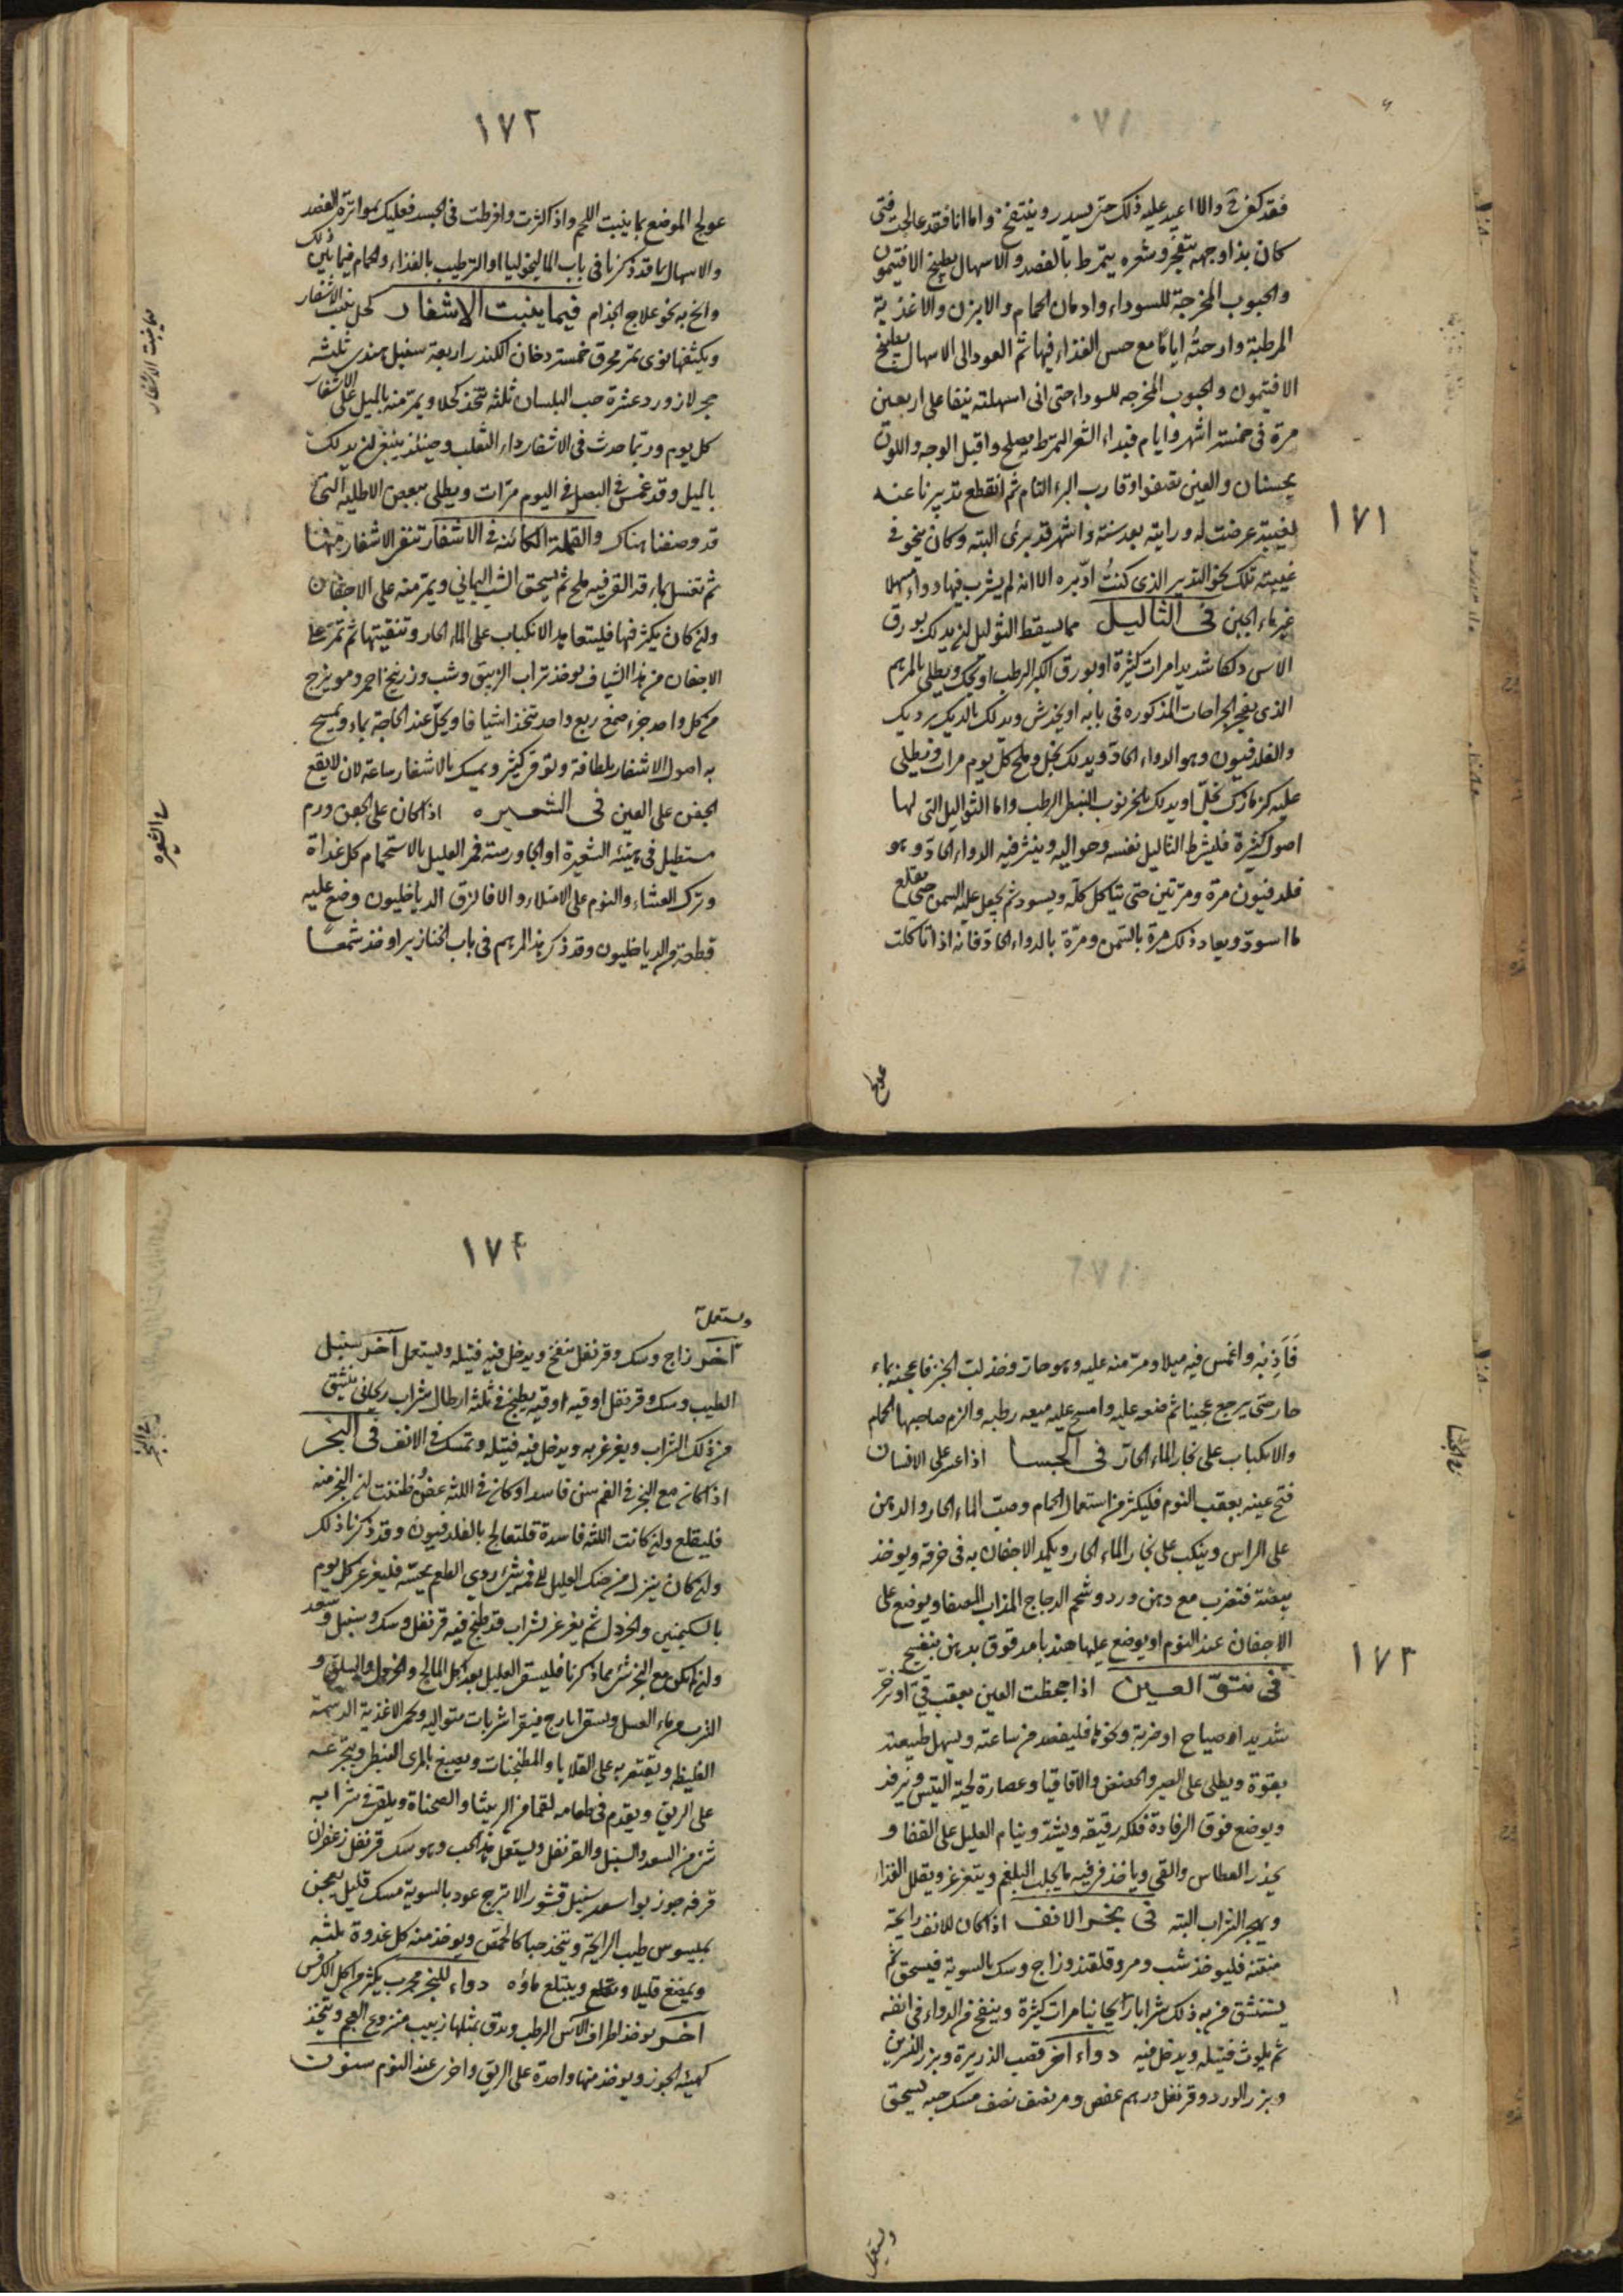 ١٧١
فقد كفى والا اعيد عليه ذلك حتى يسدر وينتفخ واما انا فقد عالجت فتى
كان بذا وجهه متفجر وشعره يتمرط بالفصد والاسهال بطبيخ الافتيمون
والحبوب المخرجة للسوداء وادمان الحمام والابزن والاغذية
المرطبة وارحته اياما مع حسن الغذاء فيها ثم العود الى الاسهال بطبيخ
الافتيمون والحبوب المخرجه للسوداء حتى انى اسهلته نيفا على اربعين
مرة فى خمسة اشهر وايام فبداء الشعر المتمرط يصلح واقبل الوجه واللون
يحسنان والعين تصفوا وقارب البرء التام ثم انقطع تدبيرنا عنه
لغيبته عرضت له ورايته بعد سنة واشهر قد برئ البته وكان ينحو فى
غيبته تلك نحو التدبير الذى كنتُ ادبره الا انه لم يشرب فيها دواء مسهلا
غير ماء الجبن فى الثاليل مما يسقط الثوليل ان يدلك بورق
الاس دلكا شديدا مرات كثيرة او بورق الكبر الرطب او تحك ويطلى بالمرهم
الذى يفجر الجراحات المذكوره فى بابه او يخدش ويدلك بالديك برديك
والفلدفيون وهو الدواء الحاد ويدلك بخل وملح كل يوم مرات ويطلى
عليه كزمازك بخل او يدلك بالخرنوب النبطى الرطب واما الثواليل التى لها
اصول كثيرة فليشرط الثاليل نفسه وحواليه وينثر فيه الدواء الحاد وهو
فلدفيون مرة ومرتين حتى يتاكل كله ويسود ثم يجعل عليه السمن حتى يقلع
ما اسود ويعاد ذلك مرة بالسمن ومرة بالدواء الحاد فانه اذا تاكلت
عولج
١٧٢
عولج الموضع بما ينبت اللحم واذا كثرت وافرطت فى الجسد فعليك بمواترة الفصد
والاسهال بما قد ذكرنا فى باب الماليخوليا او الترطيب بالغذاء والحمام فيما بين ذلك
وانح به نحو علاج الجذام فيما ينبت الاشفار كحل ينبت الاشفار
ويكثفها نوى تمر محرق خمسة دخان الكندر اربعة سنبل هندى ثلثه
حجر لازورد عشرة حب البلسان ثلثه تتخذ كحلا ويمر منه بالميل على الاشفار
كل يوم وربما حدث فى الاشفار داء الثعلب وحينئذ ينبغى ان يدلك
بالميل وقد غمس فى البصل فى اليوم مرات ويطلى ببعض الاطليه التى
قد وصفنا هناك والقملة الكائنه فى الاشفار تنقى الاشفار منها
ثم تغسل بماء قد القى فيه ملح ثم يسحق الشب اليمانى ويمر منه على الاجفان
وان كان يكثر فيها فليتعاهد الانكباب على الماء الحار وتنقيتها ثم تمر على
الاجفان من هذا الشياف يوخذ تراب الزيبق وشب وزرنيخ احمر ومويزج
من كل واحد جزء صمغ ربع واحد تتخذ اشيافا ويحل عند الحاجة بماء ويمسح
به اصول الاشفار بلطافة وتوقى كثير ويمسك بالاشفار ساعة لان لا يقع
الجفن على العين فى الشعيره اذا كان على الجفن ورم
مستطيل فى هيئه الشعيرة او الجاورسة فمر العليل بالاستحمام كل غداة
وترك العشاء والنوم على الامتلاء والا فالزق الدياخليون وضع عليه
قطعة من الدياخليون وقد ذكر هذا المرهم فى باب الخنازير او خذ شمعا
فيما ينبت الاشفار
فى الشعيره
١٧٣
فاَذِبْه واغمس فيه ميلا ومر منه عليه وهو حار وخذ لب الخبز فاعجنه بماء
حار حتى يرجع عجينا ثم ضعه عليه وامسح عليه ميعه رطبه والزم صاحبها الحمام
والانكباب على بخار الماء الحار فى الجسا اذا عسر على الانسان
فتح عينه بعقب النوم فليكثر من استعمال الحمام وصب الماء الحار والدهن
على الراس وينكب على بخار الماء الحار ويكمد الاجفان به فى خرقه ويوخذ
بيضة فتضرب مع دهن ورد وشحم الدجاج المذاب المصفا ويوضع على
الاجفان عند النوم او يوضع عليها هندبا مدقوق بدهن بنفسج
فى نتوّ العين اذا جحظت العين بعقب قئ او زحر
شديد او صياح او ضربة ونحوها فليفصد من ساعته ويسهل طبيعته
بقوة ويطلى على الصبر والحضض والاقاقيا وعصارة لحية التيس ويرفد
ويوضع فوق الرفادة فلكه رقيقه ويشد وينام العليل على القفا و
يحذر العطاس والقى وياخذ فى فيه ما يجلب البلغم ويتغرغر ويقلل الغذاء
ويهجر الشراب البته فى بخر الانف اذا كان للانف رايحة
منتنه فليوخذ شب ومر وقلقند وزاج وسك بالسوية فيسحق ثم
يستنشق فى به ذلك شرابا ريحانيا مرات كثيرة وينفخ من الدواء فى انفه
ثم يلوث فتيله ويدخل فيه دواء اخر قصب الذريرة وبزر النسرين
وبزر الورد وقرنفل درهم عفص ومر نصف نصف مسك حبه يسحق
فى الجسا
ويستعمل
١٧۴
ويستعمل
آخر زاج وسك وقرنفل ينفخ ويدخل فيه فتيله ويستعمل آخر سنبل
الطيب وسك وقرنفل اوقيه اوقيه يطبخ فى ثلثه ارطال شراب ريحانى ينشق
من ذلك الشراب ويغرغر به ويدخل فيه فتيله وتمسك فى الانف فى البخر
اذا كان مع البخر فى الفم سن فاسد او كان فى اللثه عفن وظننت ان البخر منه
فليقلع وان كانت اللثه فاسدة فلتعالج بالفلدفيون وقد ذكرنا ذلك
وان كان ينزل من حنك العليل الى فمه شئ ردى الطعم يحسه فليغرغر كل يوم
بالسكنجبين والخردل ثم يغرغر بشراب قد طبخ فيه قرنفل وسك وسنبل وسعد
وان لم يكن مع البخر شئ مما ذكرنا فليسق العليل بعد اكل المالح والخردل والسلق و
الشرب من ماء العسل ويسقى ايارج فيقرا شربات متواليه ويحمى الاغذية الدسمة
الغليظه ويقتصر به على القلايا والمطجنات ويصبغ بالمرى النبطى ويتجرعه
على الريق ويقدم فى طعامه لقما من الربيثا والصحناة ويلقى فى شرابه
شئ من السعد والسنبل والقرنفل ويستعمل هذا الحب وهو سك قرنفل زعفران
قرفه جوز بوا سعد سنبل قشور الاترج عود بالسوية مسك قليل يعجن
بميسوس طيب الرايحة ويتخذ حبا كالحمص ويوخذ منه كل غدوة ثلثه
ويمضغ قليلا ويبتلع ماؤه دواء للبخر مجرب يكثر من اكل الكرفس
آخر يوخذ اطراف الآس الرطب ويدق بمثلها زبيب منزوع العجم ويتخذ
كهيئه الجوز ويوخذ منها واحدة على الريق واخرى عند النوم سنون
فى البخر